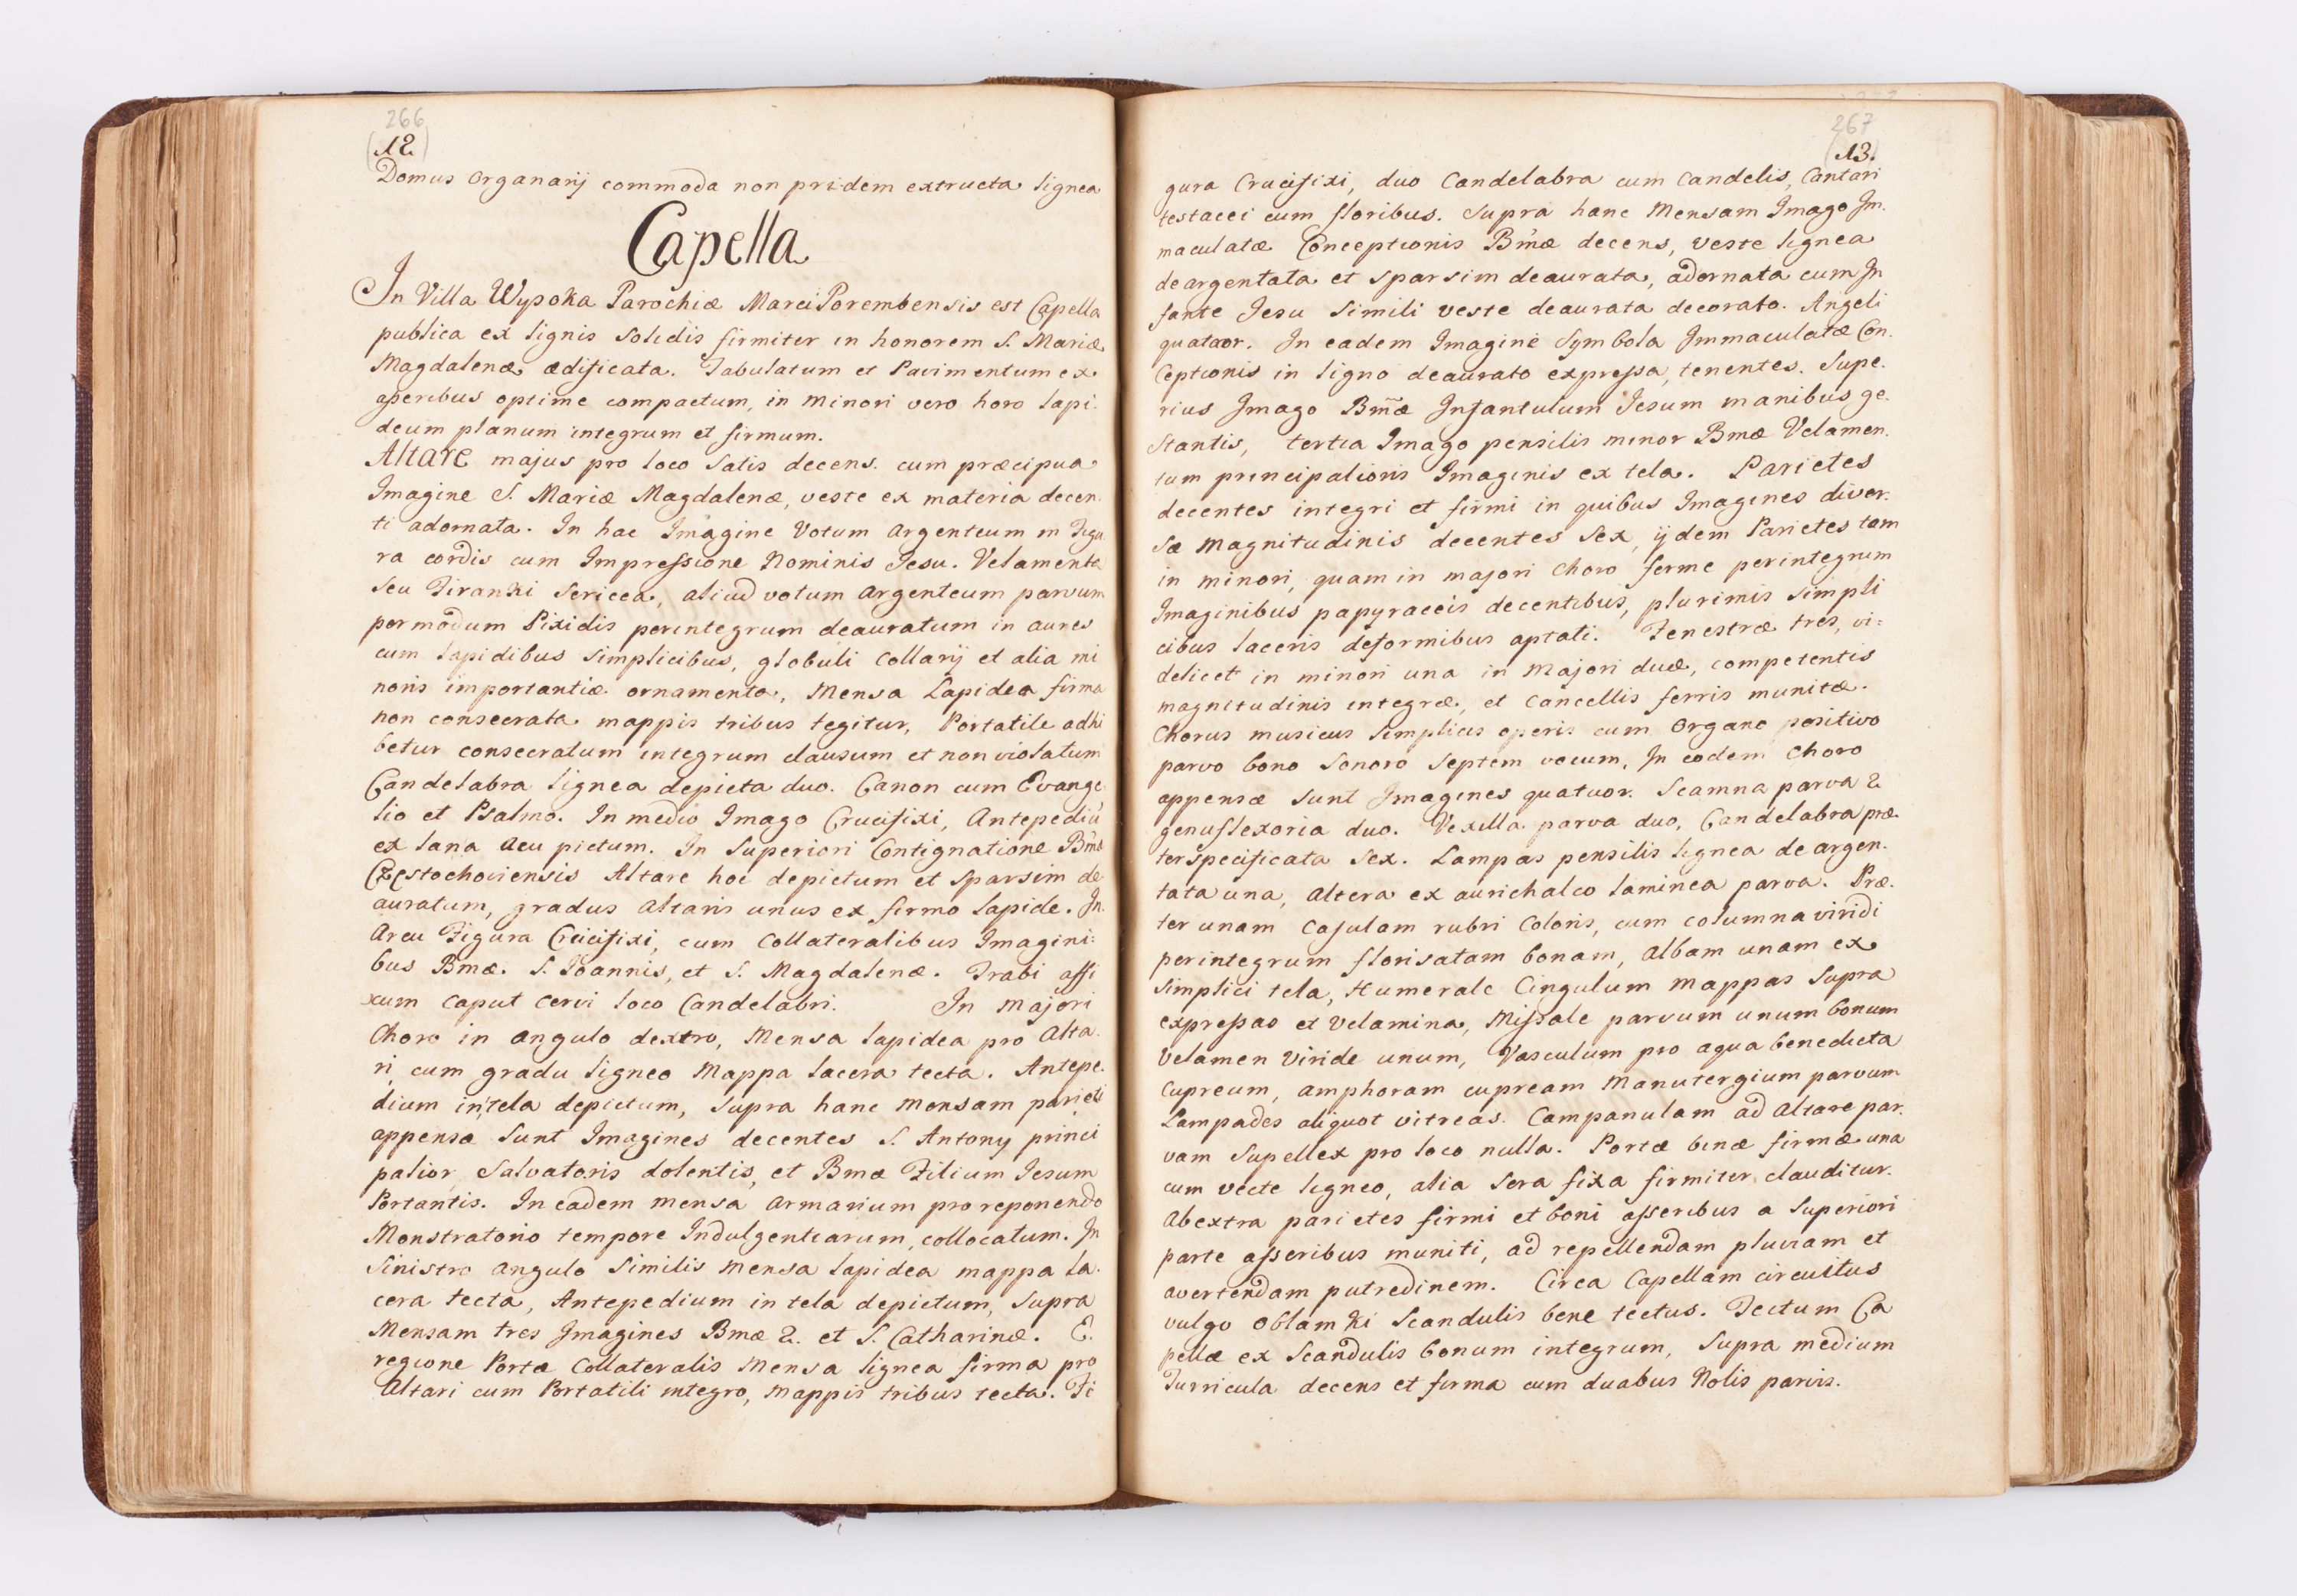 266
(12)
Domus Organarij commoda non pridem extructa lignea
Capella
In Villa Wysoka Parochiæ MarciPorembensis est Capella
publica ex lignis solidis firmiter in honorem S. Mariæ
Magdalenæ ædificata. Tabulatum et Pavimentum ex
asseribus optime compactum, in minori vero horo lapi-
deum planum integrum et firmum.
Altare majus pro loco satis decens. cum præcipua
Imagine S. Mariæ Magdalenæ, veste ex materia decen
ti adornata. In hac Imagine Votum argenteum in Figu
ra cordis cum Impressione Nominis Jesu. Velamenta
seu Firanki sericea, aliud votum argenteum parvum
per modum Pixidis perintegrum deauratum in aures
cum lapidibus simplicibus, globuli collarij et alia mi
noris importantiæ ornamenta, Mensa Lapidea firma
non consecrata mappis tribus tegitur, Portatile adhi
betur consecratum integrum clausum et non violatum
Candelabra lignea depicta duo. Canon cum Evange
lio et Psalmo. In medio Imago Crucifixi, Antepediū
ex lana acu pictum. In superiori Contignatione Bmæ
Częstochoviensis Altare hoc depictum et sparsim de
auratum, gradus altaris unus ex firmo lapide. In
Arcu Figura Crucifixi, cum Collateralibus Imagini=
bus Bmæ. S. Joannis, et S. Magdalenæ. Trabi affi
xum caput cervi loco Candelabri. In majori
Choro in angulo dextro, Mensa lapidea pro Alta-
ri, cum gradu ligneo Mappa lacera tecta. Antepe-
dium in tela depictum, supra hanc mensam parieti
appensæ sunt Imagines decentes S. Antony princi
palior, Salvatoris dolentis, et Bmæ Filium Jesum
Portantis. In eadem mensa armarium pro reponendo
Monstratorio tempore Indulgentiarum, collocatum. In
sinistro angulo similis mensa lapidea mappa la-
cera tecta, Antepedium in tela depictum, supra
Mensam tres Imagines Bmæ 2. et S. Catharinæ. E.
regione Portæ Collateralis Mensa lignea firma pro
Altari cum Portatili integro, mappis tribus tecta. Fi
267
(13.)
gura Crucifixi, duo Candelabra cum Candelis, Cantari
testacei cum floribus. Supra hanc Mensam Imago Im-
maculatæ Conceptionis Bmæ decens, veste lignea
deargentata et sparsim deaurata, adornata cum In
fante Jesu simili veste deaurata decorato. Angeli
quatuor. In eadem Imagine Symbola Immaculatæ Con-
ceptionis in ligno deaurato expressa, tenentes. Supe-
rius Imago Bm̃æ Infantulum Jesum manibus ge-
stantis, tertia Imago pensilis minor Bmæ Velamen-
tum principalioris Imaginis ex tela. Parietes
decentes integri et firmi in quibus Imagines diver-
sæ magnitudinis decentes sex, ijdem Parietes tam
in minori, quam in majori Choro ferme perintegrum
Imaginibus papyraceis decentibus, plurimis simpli
cibus laceris deformibus aptati. Fenestræ tres, vi=
delicet in minori una in majori duæ, competentis
magnitudinis integræ, et cancellis ferris munitæ.
Chorus musicus simplicis operis cum Organo positivo
parvo bono sonoro septem vocum. In eodem Choro
appensæ sunt Imagines quatuor. Scamna parva 2
genuflexoria duo. Vexilla parva duo, Candelabra præ-
terspecificata sex. Lampas pensilis lignea deargen-
tata una, altera ex aurichalco laminea parva. Præ-
ter unam Casulam rubri Coloris, cum columna viridi
perintegrum florisatam bonam, Albam unam ex
simplici tela, Humerale Cingulum mappas supra
expressas et velamina, Missale parvum unum bonum
velamen viride unum, Vasculum pro aqua benedicta
cupreum, amphoram cupream Manutergium parvum
Lampades aliquot vitreas. Campanulam ad Altare par-
vam Supellex pro loco nulla. Portæ binæ firmæ una
cum vecte ligneo, alia sera fixa firmiter clauditur.
Abextra parietes firmi et boni asseribus a superiori
parte asseribus muniti, ad repellendam pluviam et
avertendam putredinem. Circa Capellam circuitus
vulgo oblamki Scandulis bene tectus. Tectum Ca
pellæ ex Scandulis bonum integrum, supra medium
Turricula decens et firma cum duabus Nolis parvis.